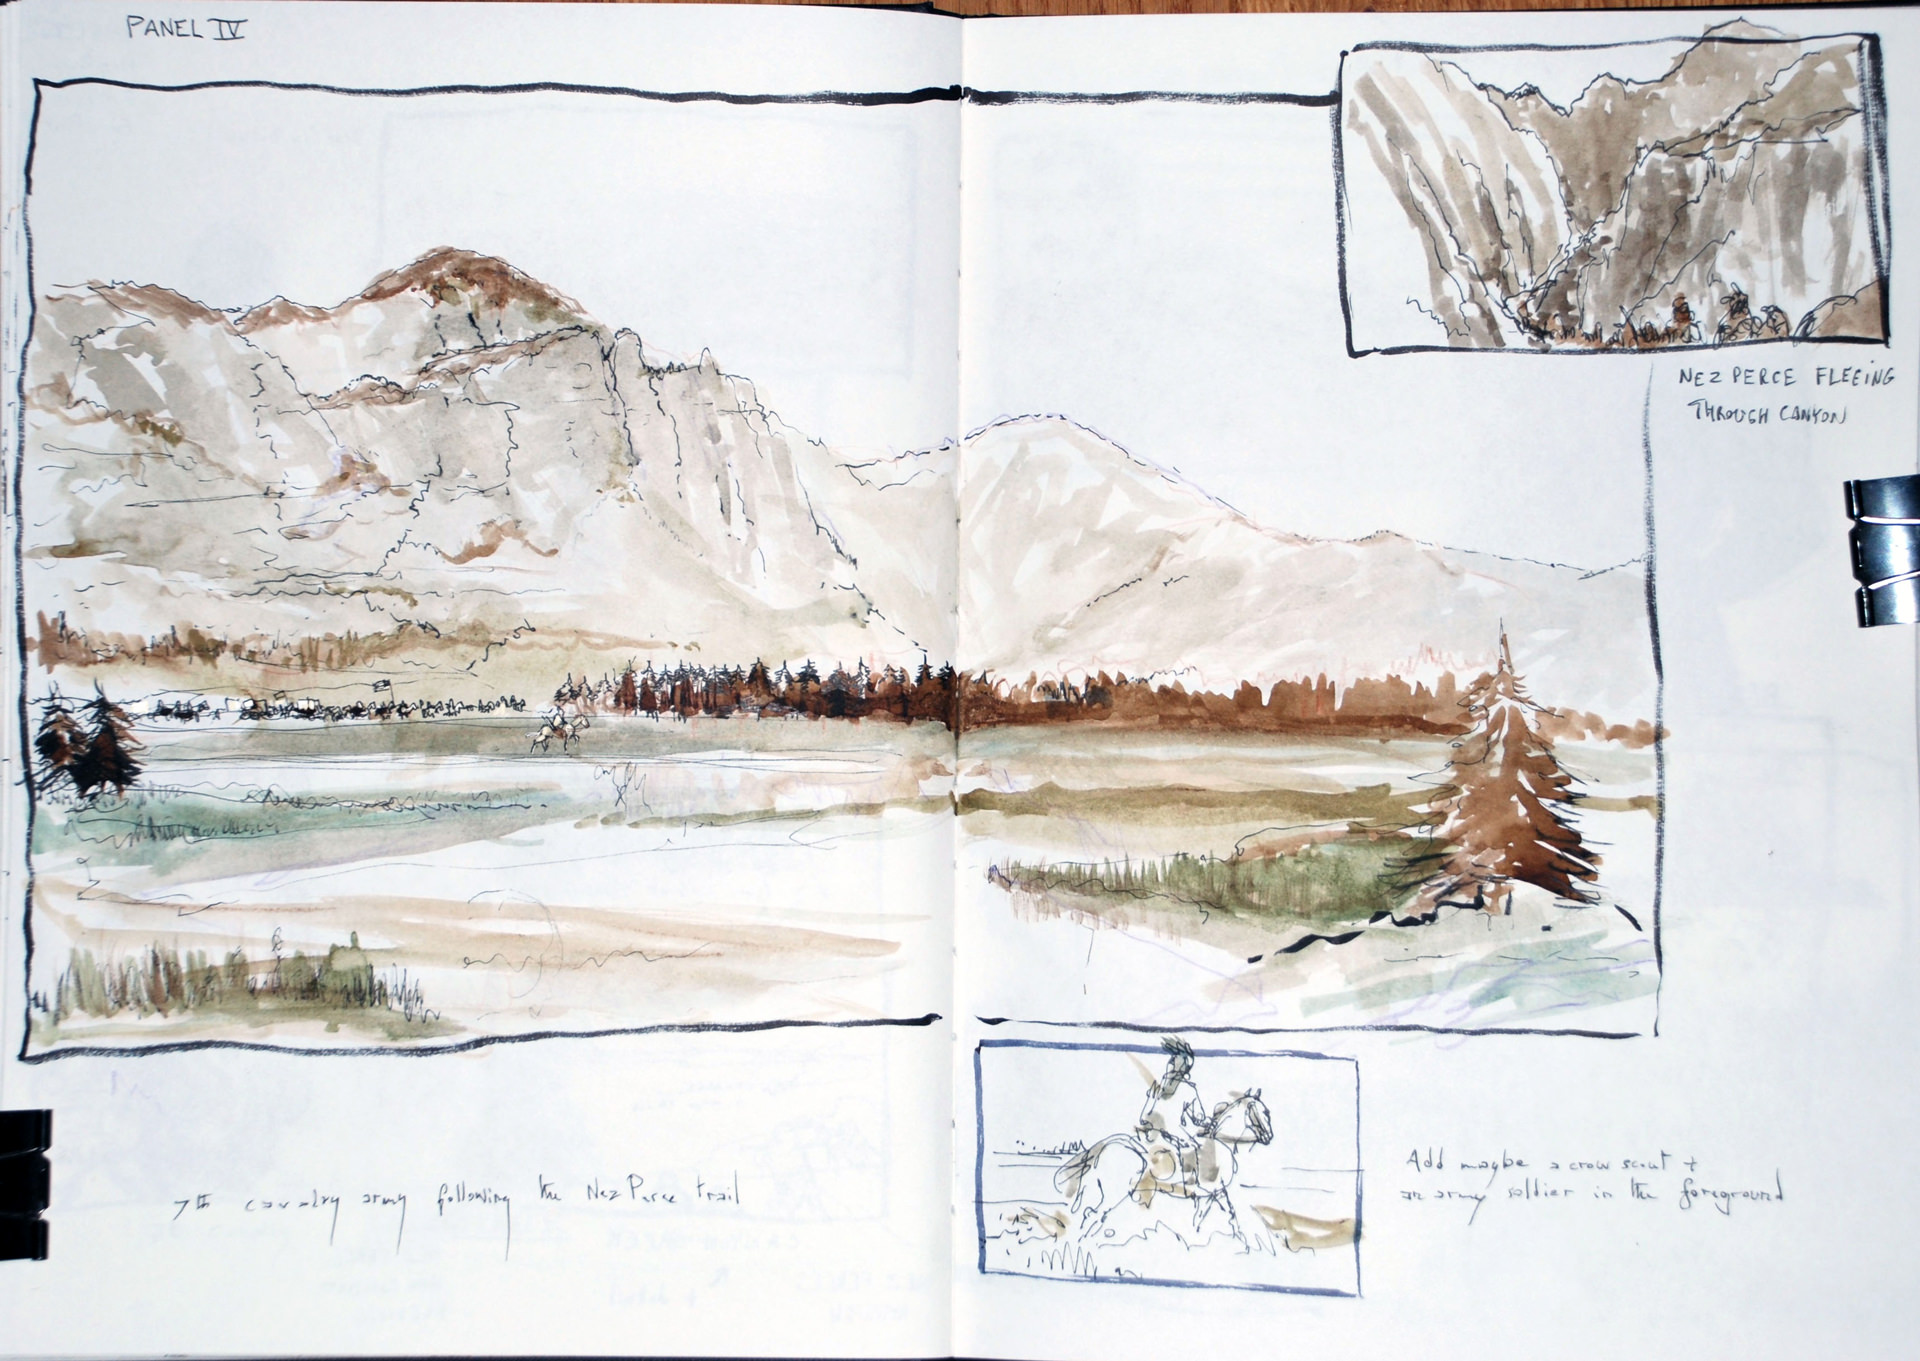 PANEL IV
NEZ PERCE FLEEING
THROUGH CANYON
7th cavalry army following the Nez Perce trail
Add maybe a crow scout +
an army soldier in the foreground